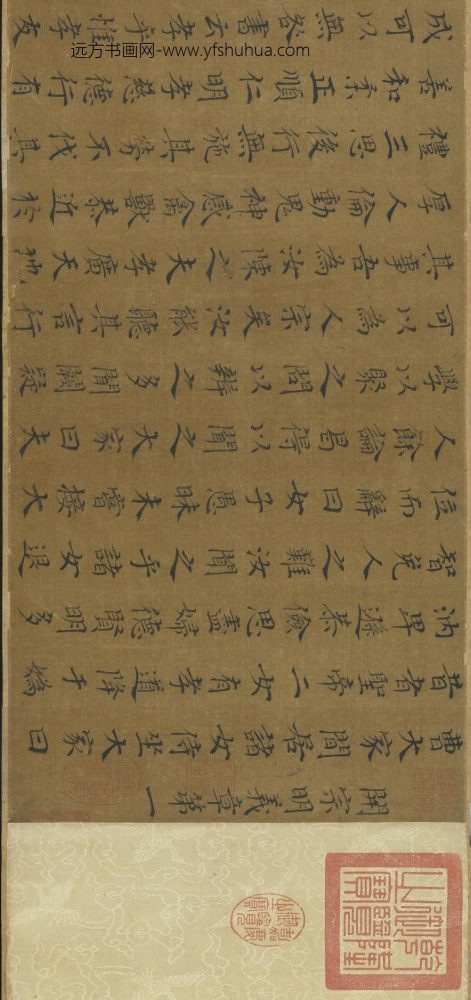 远方书画网-www.yfshuhua.com
開宗明義章第一
曹大家閒居諸女侍坐大家曰
昔者聖帝二女有孝道降于嬀
汭卑遜恭儉思盡婦德賢明多
智免人之難汝聞之乎諸女退
位而辭曰女子愚昧未嘗接大
人餘論曷得以聞之大家曰夫
學以聚之問以辯之多聞闕疑
可以為人宗矣汝能聽其言行
其事吾為汝陳之夫孝廣天地
厚人倫動鬼神感禽獸恭近於
禮三思後行無施其勞不伐其
善和柔正順仁明孝慈德行有
成可以無咎書云孝乎惟孝友